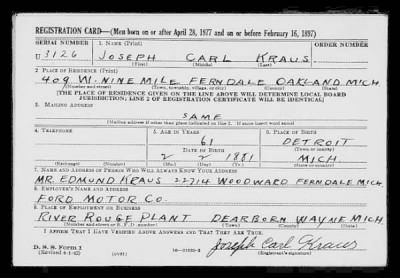 REGISTRATION CARD—(Men born on or after April 28, 1877 and on or before February 16, 1897)
SERIAL NUMBER 1. NAME (Print) ORDER NUMBER
U 3126 JOSEPH CARL KRAUS
(First) (Middle) (Last)
2. PLACE OF RESIDENCE (Print)
409 W. NINE MILE FERNDALE OAKLAND MICH.
(Number and street) (Town, township, village, or city) (County) (State)
[THE PLACE OF RESIDENCE GIVEN ON THE LINE ABOVE WILL DETERMINE LOCAL BOARD
JURISDICTION; LINE 2 OF REGISTRATION CERTIFICATE WILL BE IDENTICAL]
3. MAILING ADDRESS
SAME
[Mailing address if other than place indicated on line 2. If same insert word same]
4. TELEPHONE 5. AGE IN YEARS 6. PLACE OF BIRTH
61 DETROIT
DATE OF BIRTH (Town or county)
2 2 1881 MICH.
(Exchange) (Number) (Mo.) (Day) (Yr.) (State or country)
7. NAME AND ADDRESS OF PERSON WHO WILL ALWAYS KNOW YOUR ADDRESS
MR EDMUND KRAUS 22714 WOODWARD FERNDALE MICH.
8. EMPLOYER'S NAME AND ADDRESS
FORD MOTOR CO.
9. PLACE OF EMPLOYMENT OR BUSINESS
RIVER ROUGE PLANT DEARBORN WAYNE MICH.
(Number and street or R. F. D. number) (Town) (County) (State)
I AFFIRM THAT I HAVE VERIFIED ABOVE ANSWERS AND THAT THEY ARE TRUE.
D. S. S. Form 1
(Revised 4-1-42) (over) Joseph Carl Kraus
(Registrant's signature)